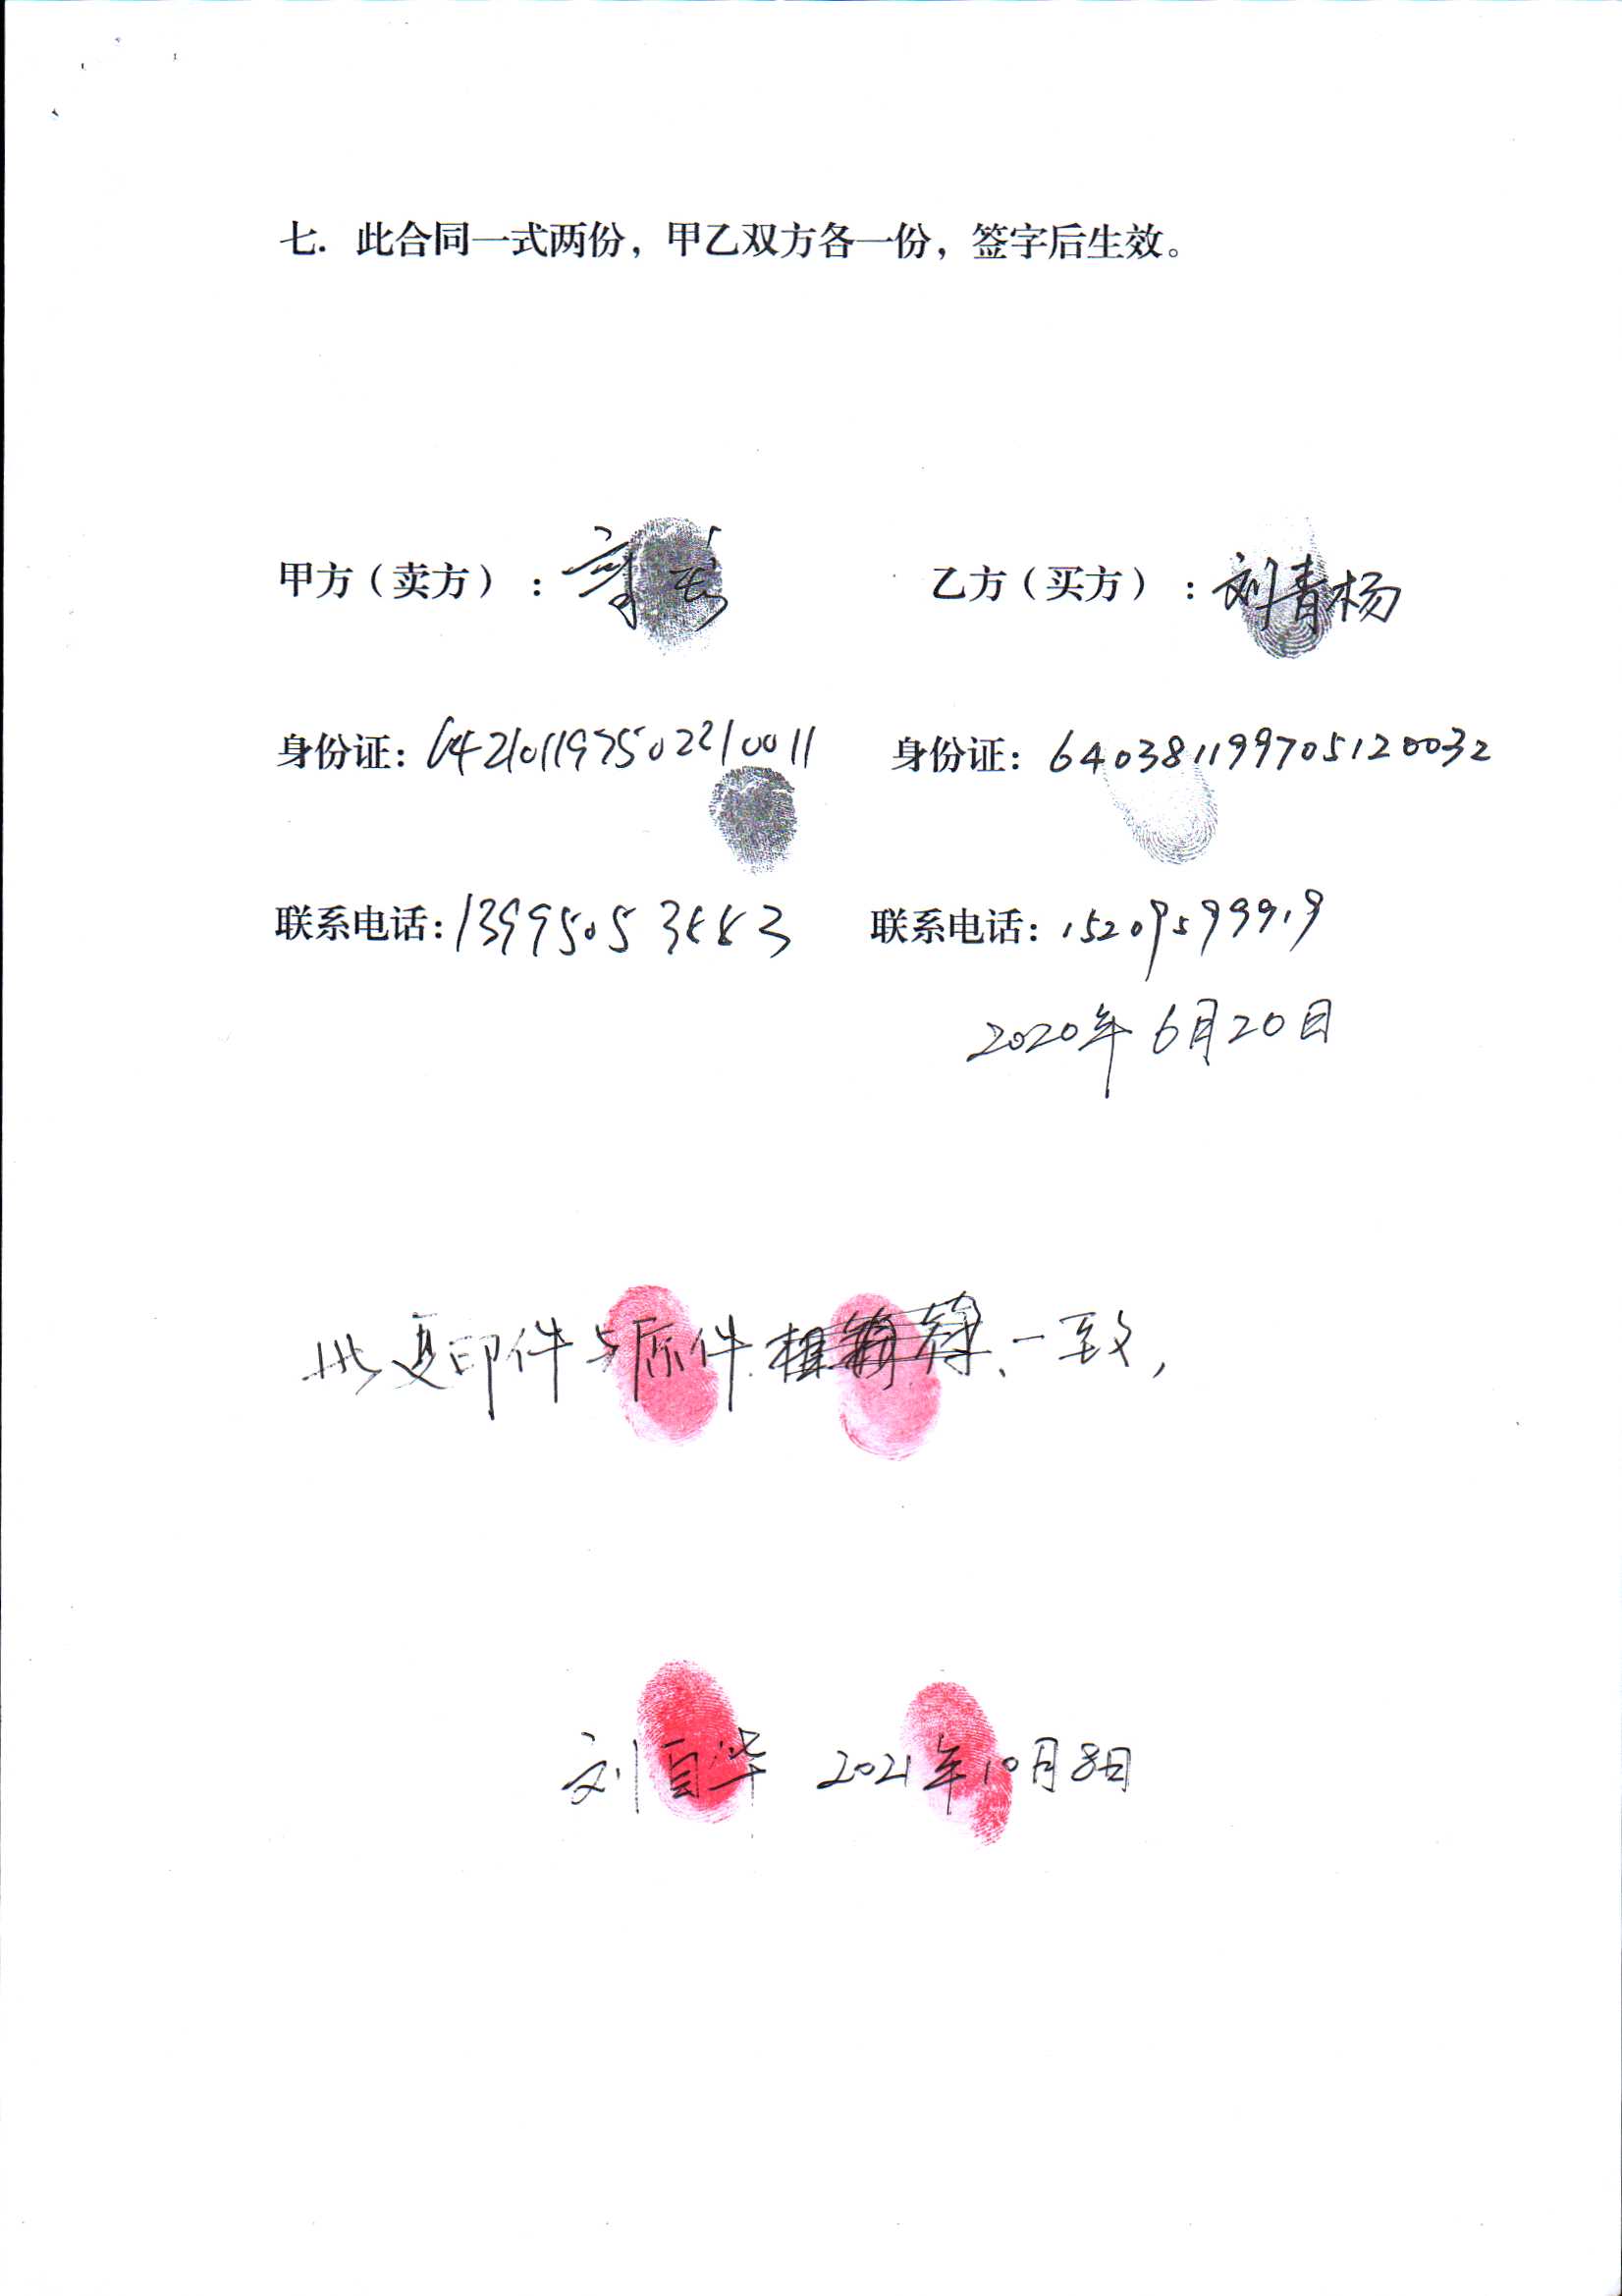 七. 此合同一式两份，甲乙双方各一份，签字后生效。
甲方（卖方）： 乙方（买方）：刘青杨
身份证：642101197502210011 身份证：640381199705120032
联系电话：13995053883 联系电话：15209599919
2020年6月20日
此复印件与原件相符、一致，
刘自华 2021年10月8日